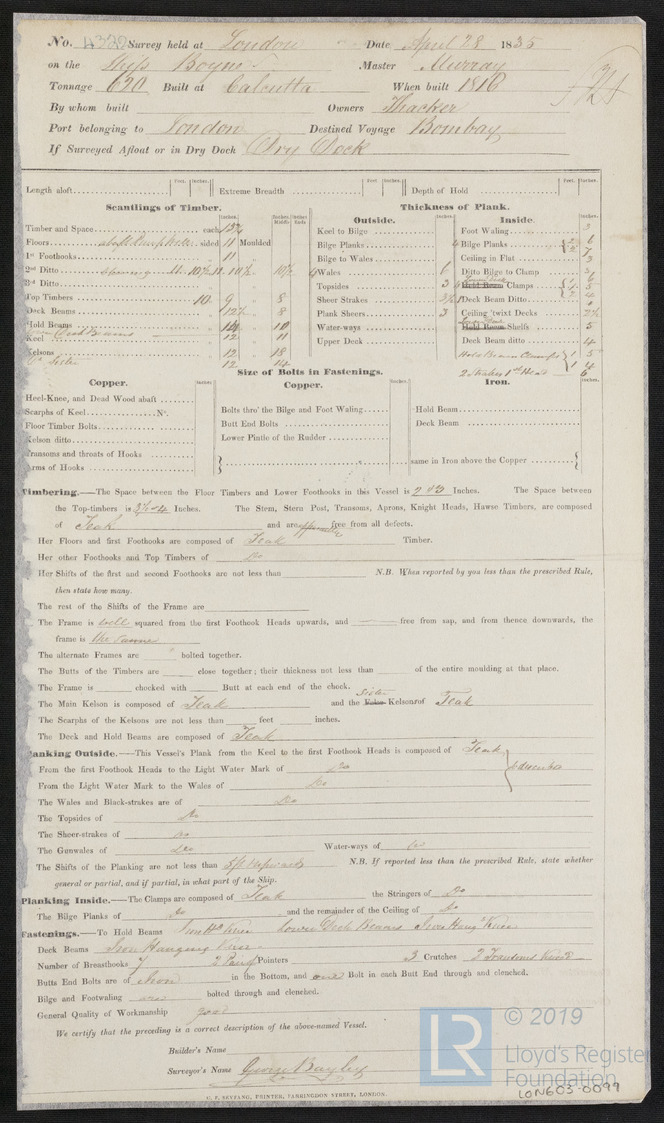 No. 4322 Survey held at London Date April 28 1835
on the Ship Boyne Master Murray
Tonnage 620 Built at Calcutta When built 1816
By whom built Owners Thacker
Port belonging to London Destined Voyage Bombay
If Surveyed Afloat or in Dry Dock Dry Dock
Length aloft Feet. Inches. Extreme Breadth Feet Inches. Depth of Hold Feet. Inches.
Scantlings of Timber. Thickness of Plank.
Outside. Inside
Timber and Space each
Floors sided 11 Moulded
1st Foothooks 11
2nd Ditto
3rd Ditto
Top Timbers 10 9 8
Deck Beams 12½ 8
Hold Beams 10
Keel 12 11
Kelsons 12 18
Do Sister 12 14
Keel to Bilge
Bilge Planks
Bilge to Wales
Wales 6
Topsides 3
Sheer Strakes 3½
Plank Sheers 3
Water-ways
Upper Deck
Foot Waling 3
Bilge Planks
Ceiling in Flat 3
Ditto Bilge to Clamp
Hold Beam Clamps
Deck Beam Ditto
Ceiling 'twixt Decks 2½
Hold Beam Shelfs 5
Deck Beam ditto 4
Hold Beam Clamps 1 5
2 Strakes 1st Head
Size of Bolts in Fastenings.
Copper. Copper. Iron.
Heel-Knee, and Dead Wood abaft
Scarphs of Keel No.
Floor Timber Bolts
Kelson ditto
Transoms and throats of Hooks
Arms of Hooks
Bolts thro' the Bilge and Foot Waling
Butt End Bolts
Lower Pintle of the Rudder
Hold Beam
Deck Beam
same in Iron above the Copper
Timbering.—The Space between the Floor Timbers and Lower Foothooks in this Vessel is 2 & 3 Inches. The Space between
the Top-timbers is 2½ & 4 Inches. The Stem, Stern Post, Transoms, Aprons, Knight Heads, Hawse Timbers, are composed
of Teak and are apparently free from all defects.
Her Floors and first Foothooks are composed of Teak Timber.
Her other Foothooks and Top Timbers of Do
Her Shifts of the first and second Foothooks are not less than N.B. When reported by you less than the prescribed Rule,
then state how many.
The rest of the Shifts of the Frame are
The Frame is well squared from the first Foothook Heads upwards, and free from sap, and from thence downwards, the
frame is the same
The alternate Frames are bolted together.
The Butts of the Timbers are close together; their thickness not less than of the entire moulding at that place.
The Frame is chocked with Butt at each end of the chock.
The Main Kelson is composed of Teak and the Sister False Kelsons of Teak
The Scarphs of the Kelsons are not less than feet inches.
The Deck and Hold Beams are composed of Teak
Planking Outside.—This Vessel's Plank from the Keel to the first Foothook Heads is composed of Teak
From the first Foothook Heads to the Light Water Mark of Do
From the Light Water Mark to the Wales of Do
The Wales and Black-strakes are of Do
The Topsides of Do
The Sheer-strakes of Do
The Gunwales of Do Water-ways of Do
The Shifts of the Planking are not less than 5ft upwards N.B. If reported less than the prescribed Rule, state whether
general or partial, and if partial, in what part of the Ship.
Planking Inside.—The Clamps are composed of Teak the Stringers of Do
The Bilge Planks of Do and the remainder of the Ceiling of Do
Fastenings.—To Hold Beams Lower Deck Beams Iron Hang Knees
Deck Beams Iron Hanging Knees
Number of Breasthooks 7 2 Pair Pointers 3 Crutches 2 Transoms Kneed
Butts End Bolts are of Iron in the Bottom, and one Bolt in each Butt End through and clenched.
Bilge and Footwaling are bolted through and clenched.
General Quality of Workmanship good
We certify that the preceding is a correct description of the above-named Vessel.
Builder's Name
Surveyor's Name Gwen Bayley
C. F. SEYFANG, PRINTER, FARRINGDON STREET, LONDON.
LR © 2019
Lloyd's Register
Foundation
LON603-0099